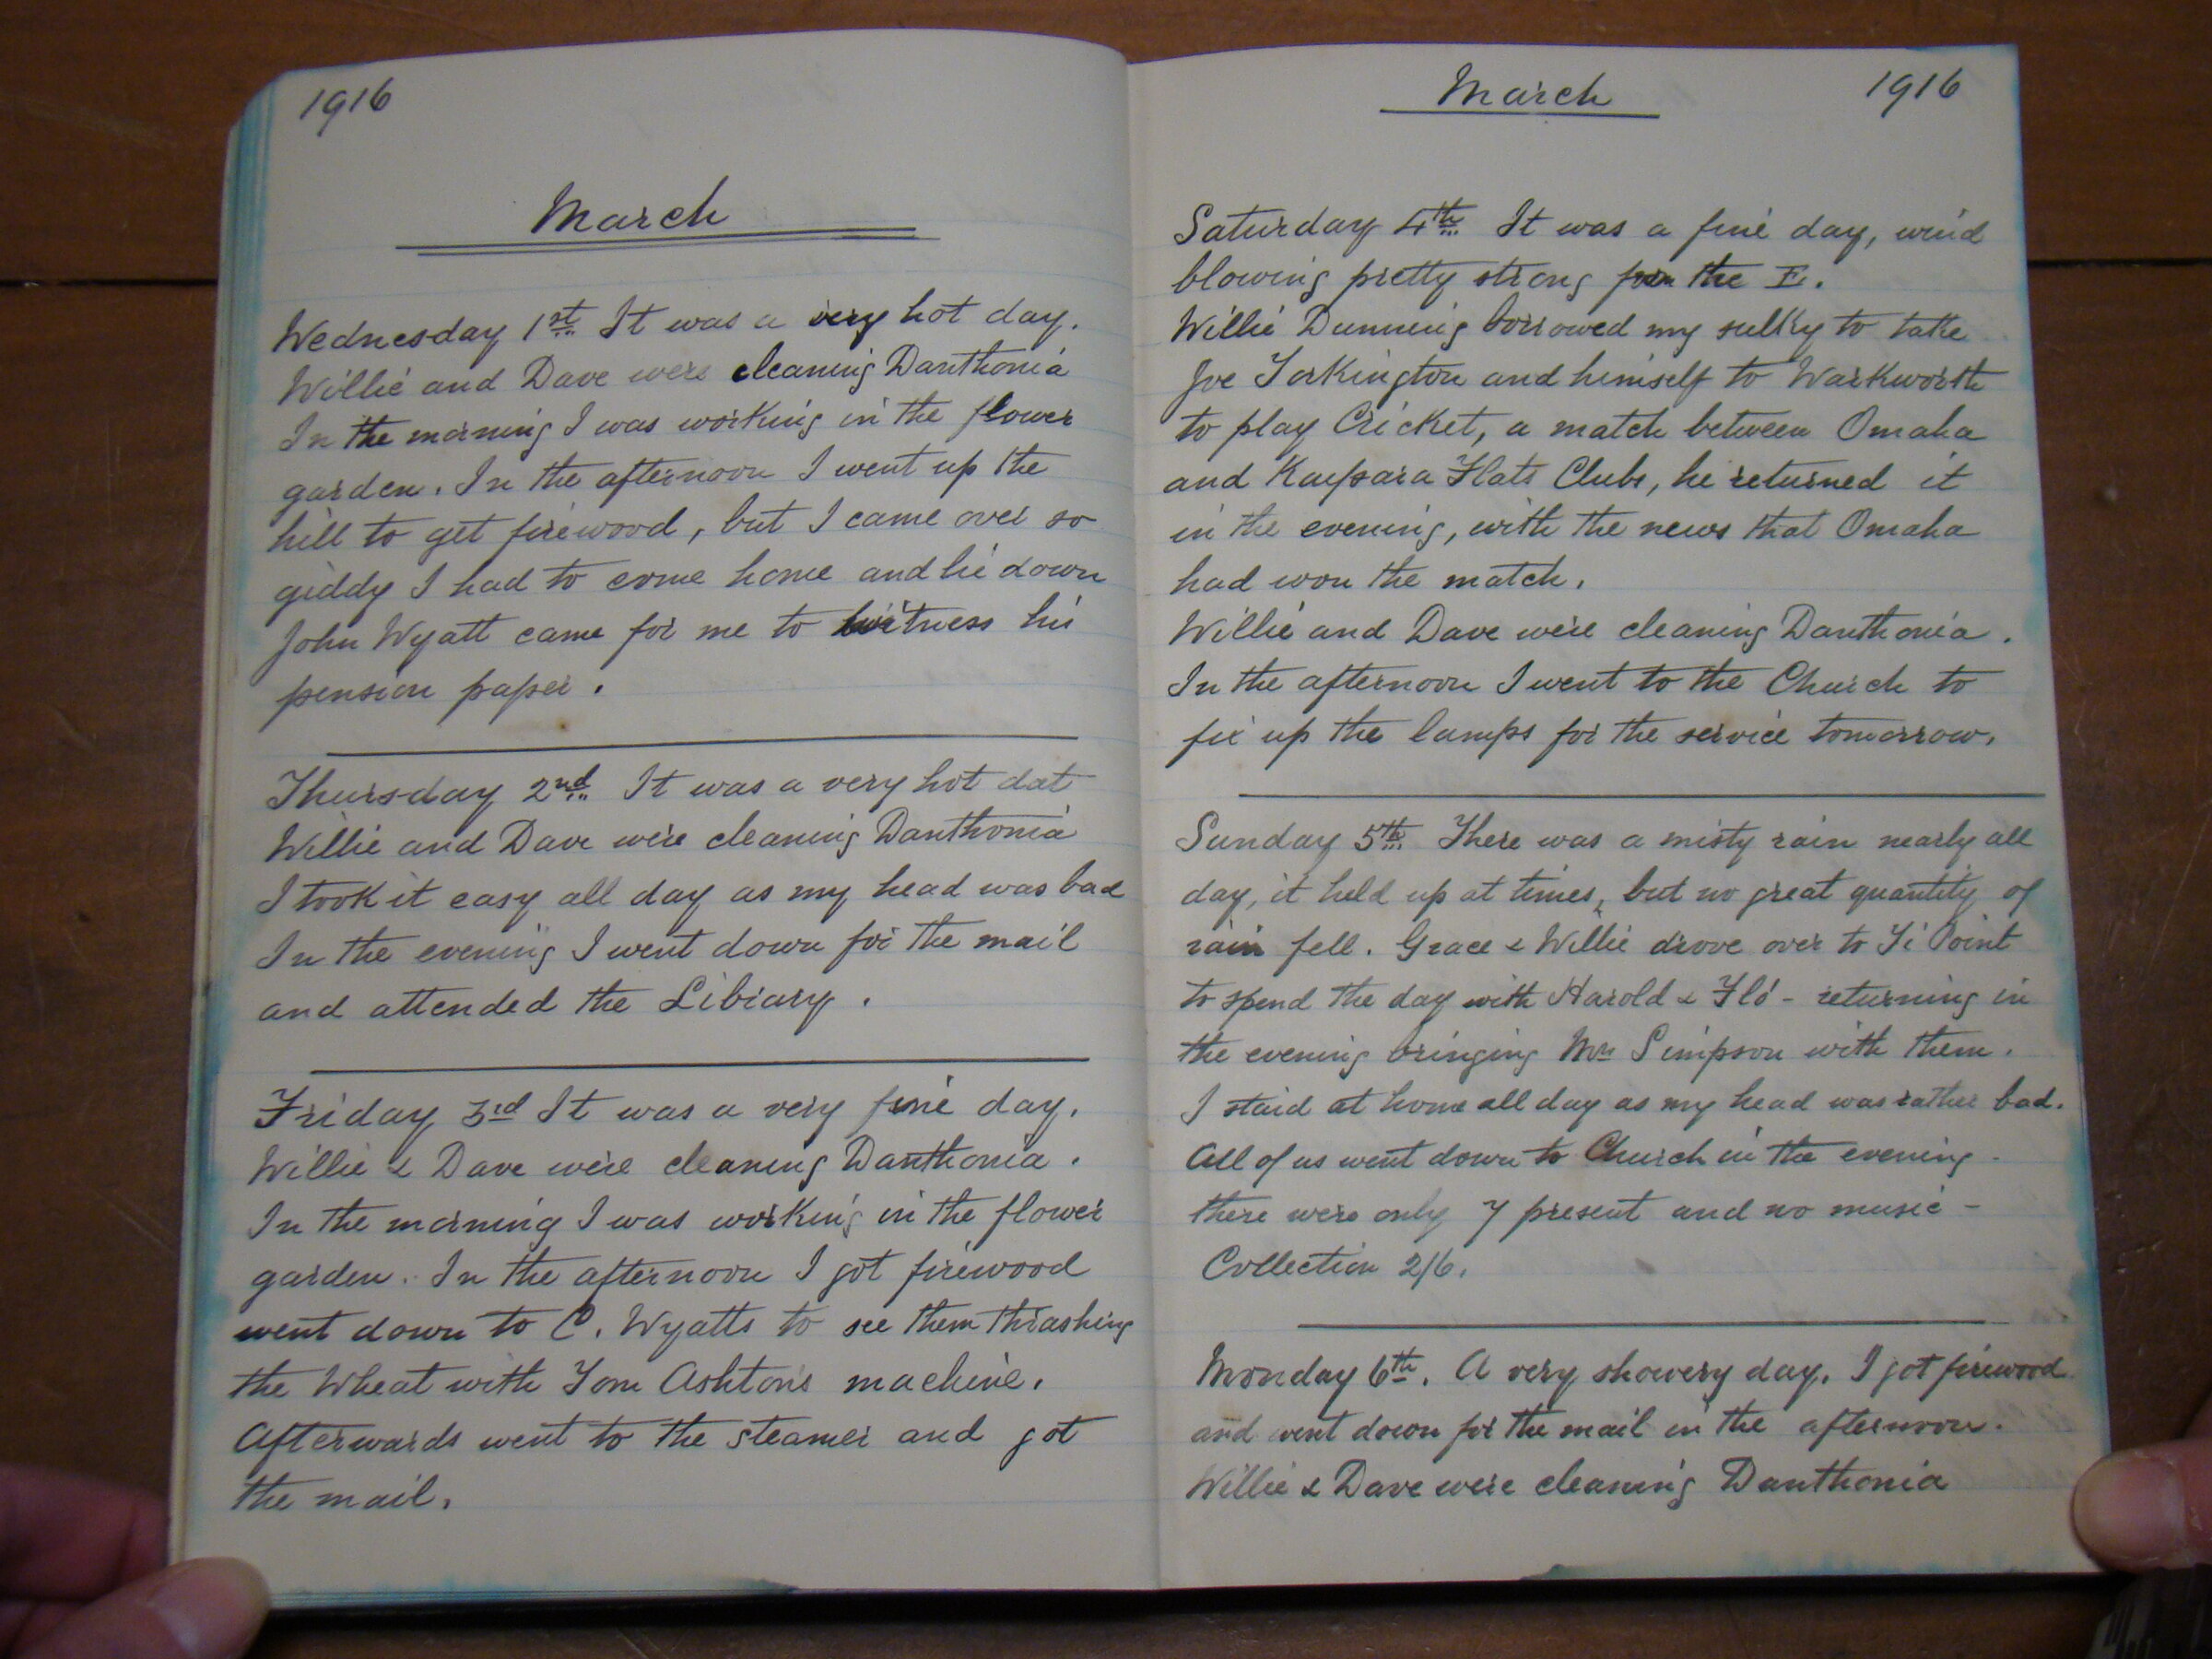 1916
March
Wednesday 1st It was a very hot day.
Willie and Dave were cleaning Danthonia
In the morning I was working in the flower
garden. In the afternoon I went up the
hill to get firewood, but I came over so
giddy I had to come home and lie down
John Wyatt came for me to witness his
pension paper.
Thursday 2nd It was a very hot dat
Willie and Dave were cleaning Danthonia
I took it easy all day as my head was bad
In the evening I went down for the mail
and attended the Library.
Friday 3rd It was a very fine day.
Willie & Dave were cleaning Danthonia.
In the morning I was working in the flower
garden. In the afternoon I got firewood
went down to C. Wyatts to see them thrashing
the Wheat with Tom Ashtons machine.
Afterwards went to the steamer and got
the mail.
March 1916
Saturday 4th It was a fine day, wind
blowing pretty strong from the E.
Willie Dunning borrowed my sulky to take
Joe Torkington and himself to Warkworth
to play Cricket, a match between Omaha
and Kaipara Flats Clubs, he returned it
in the evening, with the news that Omaha
had won the match.
Willie and Dave were cleaning Danthonia.
In the afternoon I went to the Church to
fix up the lamps for the service tomorrow.
Sunday 5th There was a misty rain nearly all
day, it held up at times, but no great quantity of
rain fell. Grace & Willie drove over to Ti Point
to spend the day with Harold & Flo - returning in
the evening bringing Mrs Simpson with them.
I staid at home all day as my head was rather bad.
All of us went down to Church in the evening -
there were only 7 present and no music -
Collection 2/6.
Monday 6th. A very showery day. I got firewood
and went down for the mail in the afternoon.
Willie & Dave were cleaning Danthonia